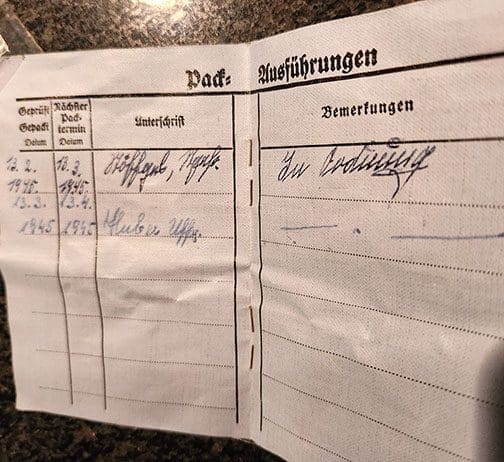 Pack-Ausführungen
Geprüft Gepackt Datum
Nächster Pack-termin Datum
Unterschrift
Bemerkungen
13.2. 1945. 13.3. 1945. In Ordnung
13.3. 1945 13.4. 1945 Huber Uffz. — " —